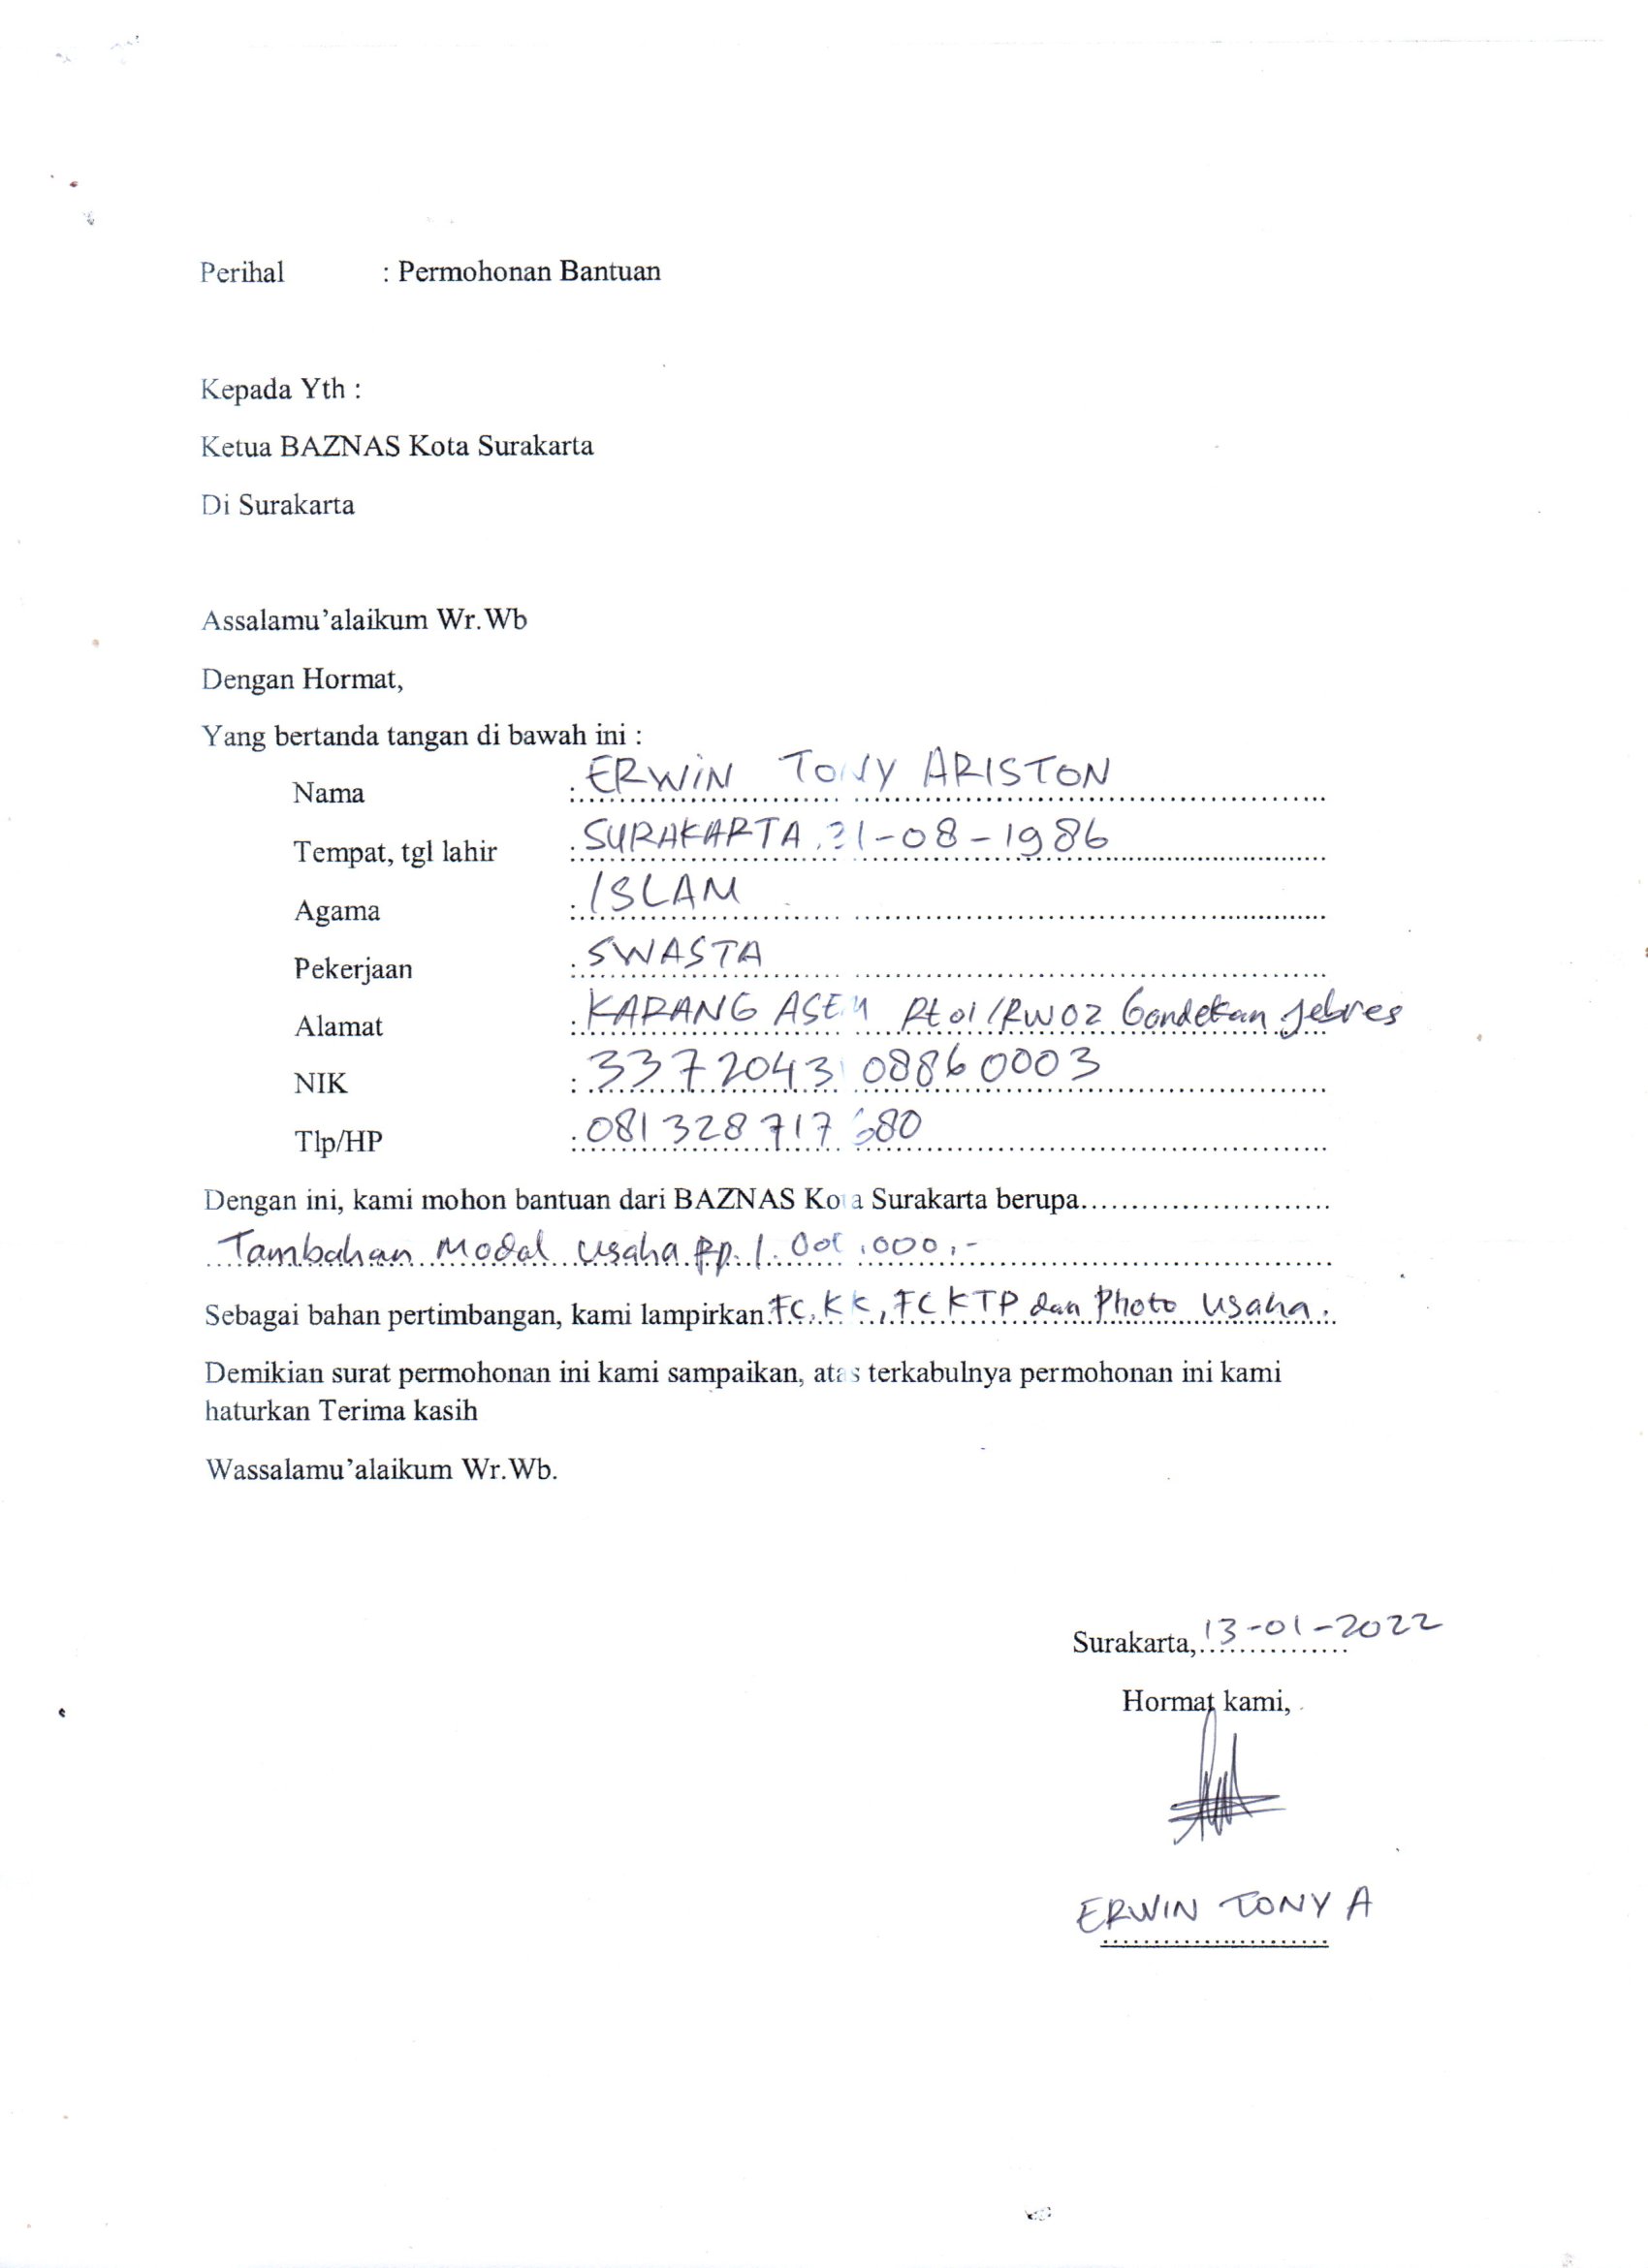 Perihal : Permohonan Bantuan
Kepada Yth :
Ketua BAZNAS Kota Surakarta
Di Surakarta
Assalamu’alaikum Wr.Wb
Dengan Hormat,
Yang bertanda tangan di bawah ini :
Nama : ERWIN TONY ARISTON
Tempat, tgl lahir : SURAKARTA, -08-1986
Agama : ISLAM
Pekerjaan : SWASTA
Alamat : KARANG ASEM Rt01/RW02 Gandekan Jebres
NIK :
Tlp/HP :
Dengan ini, kami mohon bantuan dari BAZNAS Kota Surakarta berupa........................
Tambahan Modal usaha Rp. 1.000.000,-
Sebagai bahan pertimbangan, kami lampirkan FC. KK, FC KTP dan Photo Usaha.
Demikian surat permohonan ini kami sampaikan, atas terkabulnya permohonan ini kami
haturkan Terima kasih
Wassalamu’alaikum Wr.Wb.
Surakarta, 13-01-2022
Hormat kami,
ERWIN TONY A